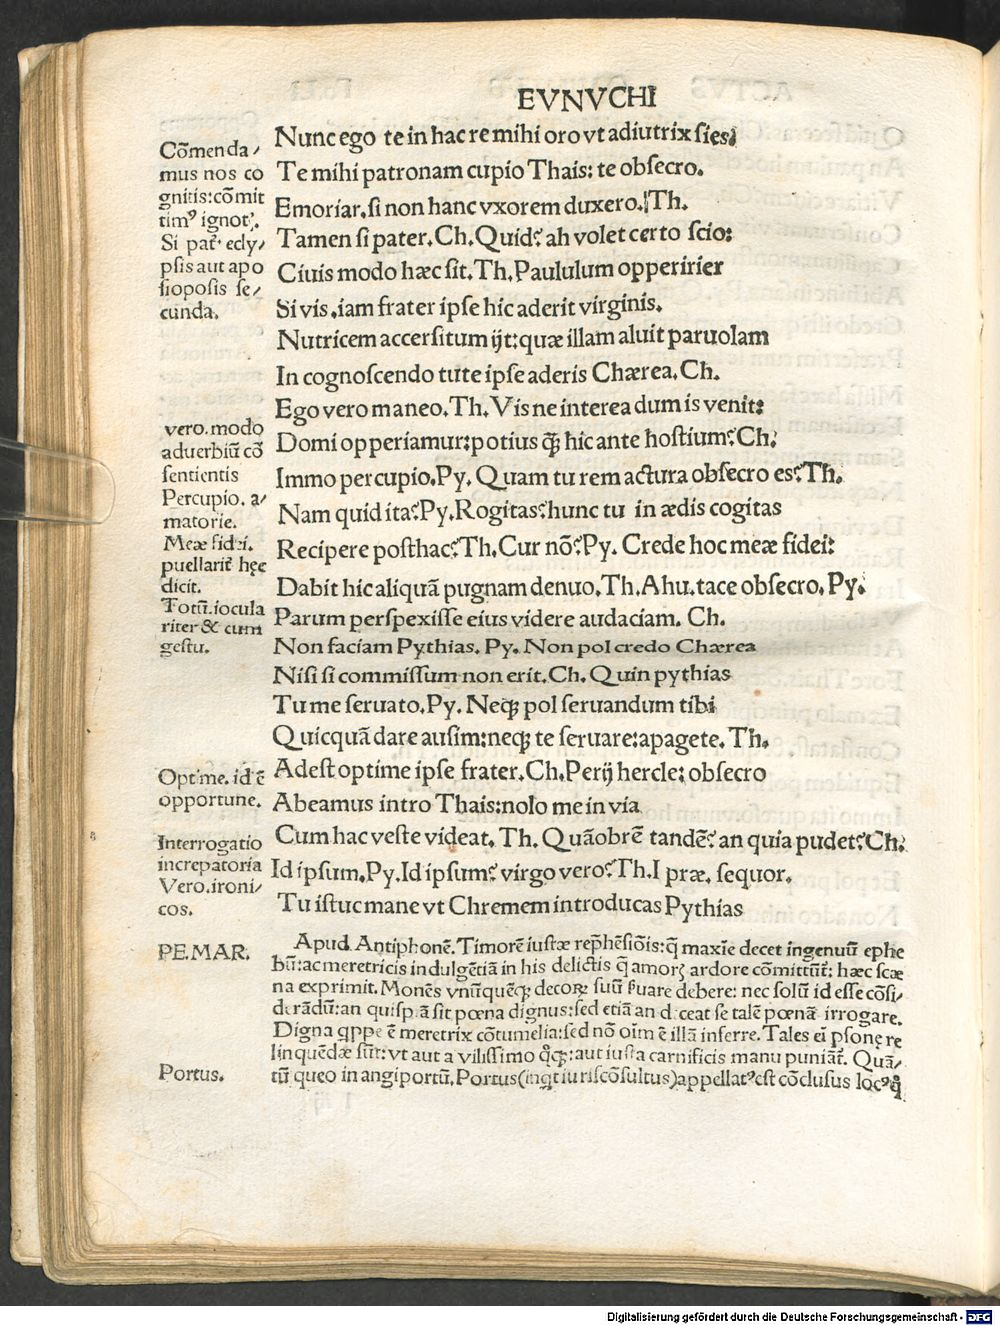 EVNVCHI
Nunc ego te in hac re mihi oro vt adiutrix sies;
Te mihi patronam cupio Thais: te obsecro.
Emoriar, si non hanc vxorem duxero. Th.
Tamen si pater. Ch. Quid? ah volet certo scio:
Ciuis modo hæc sit. Th. Paululum opperirier
Si vis, iam frater ipse hic aderit virginis.
Nutricem accersitum ijt: quæ illam aluit paruolam
In cognoscendo tute ipse aderis Chærea. Ch.
Ego vero maneo. Th. Vis ne interea dum is venit:
Domi opperiamur: potius ꝙ̃ hic ante hostium? Ch.
Immo percupio. Py. Quam tu rem actura obsecro es? Th.
Nam quid ita? Py. Rogitas? hunc tu in ædis cogitas
Recipere posthac? Th. Cur nõ? Py. Crede hoc meæ fidei:
Dabit hic aliquã pugnam denuo. Th. Ahu. tace obsecro. Py.
Parum perspexisse eius videre audaciam. Ch.
Non faciam Pythias. Py. Non pol credo Chærea
Nisi si commissum non erit. Ch. Quin pythias
Tu me seruato. Py. Neqꝫ pol seruandum tibi
Quicquã dare ausim: neqꝫ te seruare: apagete. Th.
Adest optime ipse frater. Ch. Perij hercle: obsecro
Abeamus intro Thais: nolo me in via
Cum hac veste videat. Th. Quãobrẽ tandẽ? an quia pudet? Ch.
Id ipsum. Py. Id ipsum? virgo vero? Th. I præ. sequor.
Tu istuc mane vt Chremem introducas Pythias
Cõmenda/
mus nos co
gnitis: cõmit
timꝰ ignot'.
Si pat̃ ecly/
psis aut apo
sioposis se/
cunda.
vero. modo
aduerbiũ cõ
sentientis
Percupio. a/
matorie.
Meæ fidei.
puellarit̃ hęc
dicit.
Totũ. iocula
riter & cum
gestu.
Optime. id ẽ
opportune.
Interrogatio
increpatoria
Vero. ironi/
cos.
PE. MAR.
Apud Antiphonẽ. Timorẽ iustæ rep̃hẽsiõis: q̃ maxĩe decet ingenuũ ephe
bũ: ac meretricis indulgẽtiã in his delictis q̃ amorꝫ ardore cõmittũt̃: hæc scæ
na exprimit. Monẽs vnũquẽqꝫ decorꝫ suũ ſ̃uare debere: nec solũ id esse cõsi/
derãdũ: an quisp̃ã sit pœna dignus: sed etiã an deceat se talẽ pœnã irrogare.
Digna q̃ppe ẽ meretrix cõtumelia: sed nõ oĩm ẽ illã inferre. Tales eĩ ꝑsonę re
linquẽdæ sũt: vt aut a vilissimo q̊qꝫ: aut iusta carnificis manu puniãt̃. Quã/
tũ queo in angiportũ. Portus (inqt iuriscõsultus) appellatꝰ est cõclusus locꝰ q̊
Portus.
Digitalisierung gefördert durch die Deutsche Forschungsgemeinschaft - DFG